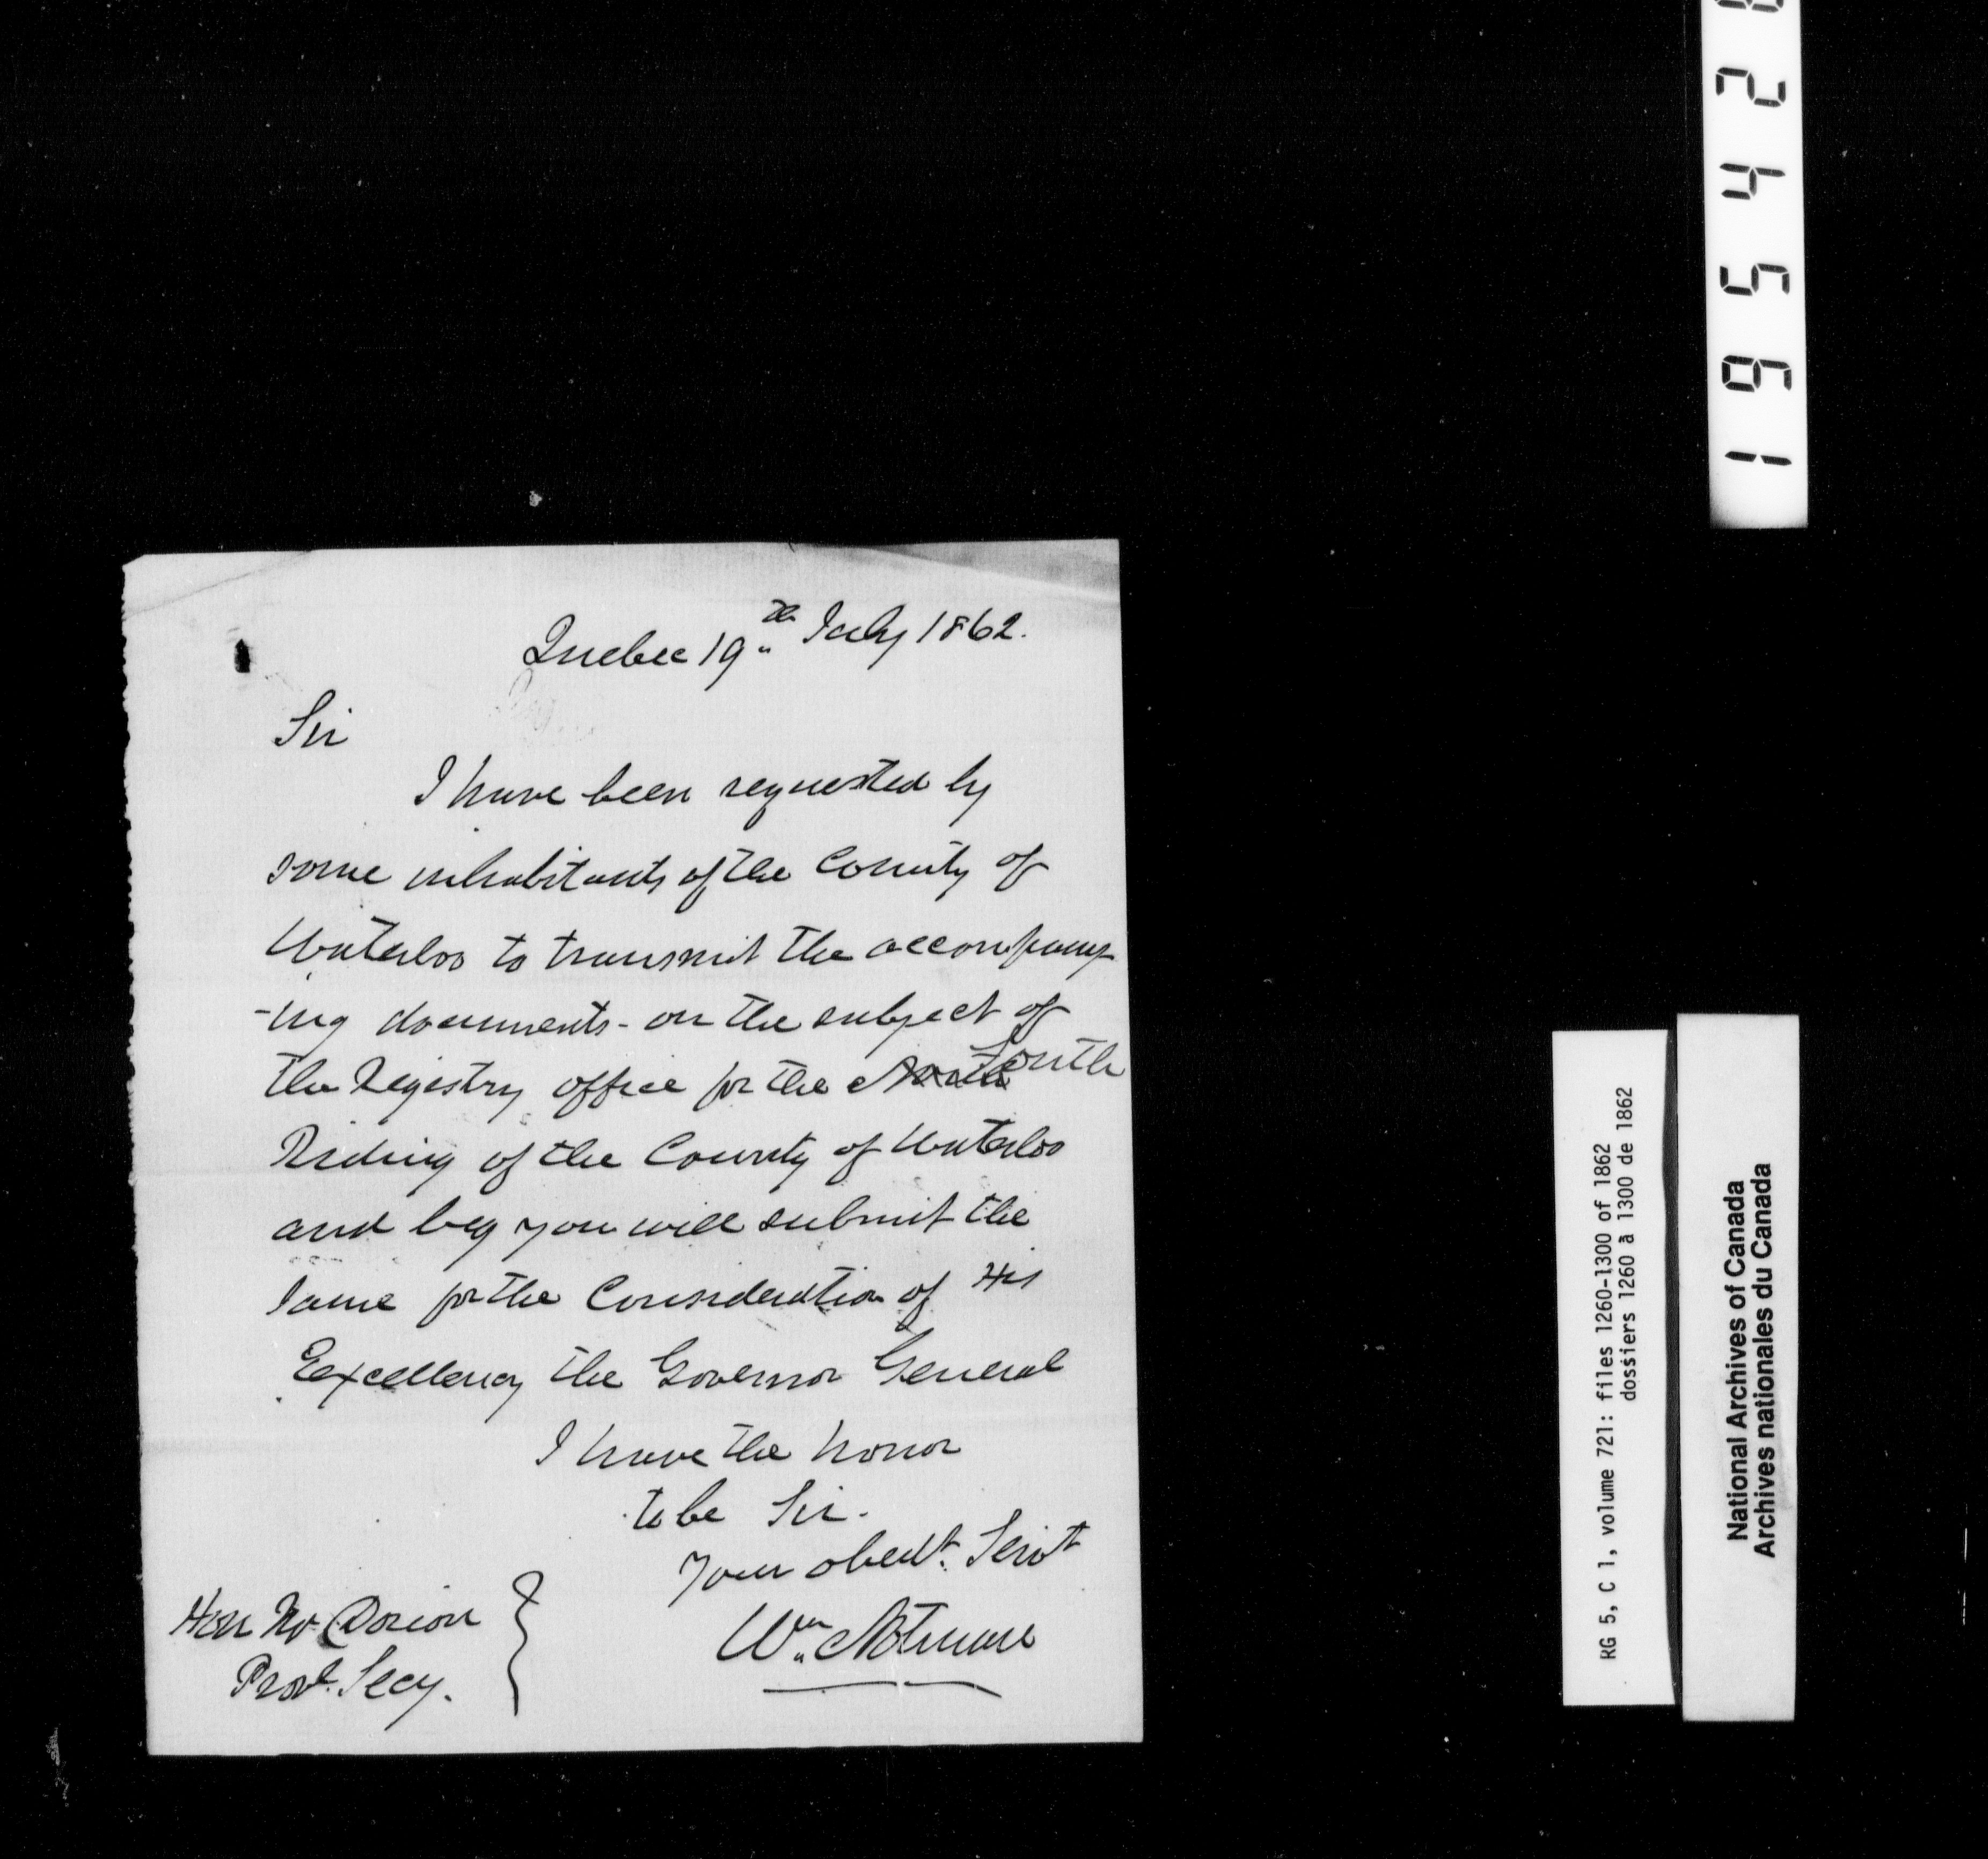 Quebec 19th July 1862.
Sir
I have been requested by
some inhabitants of the County of
Waterloo to transmit the accompany
-ing documents - on the subject of
the Registry office for the North South
Riding of the County of Waterloo
and beg you will submit the
same for the Consideration of His
Excellency the Governor General
I have the honor
to be Sir.
your obedt. Servt
Wm. Notman
Hon Mr Dorion
Provl. Secy.
1 9 5 4 2
RG 5, C 1, volume 721: files 1260-1300 of 1862
dossiers 1260 à 1300 de 1862
National Archives of Canada
Archives nationales du Canada